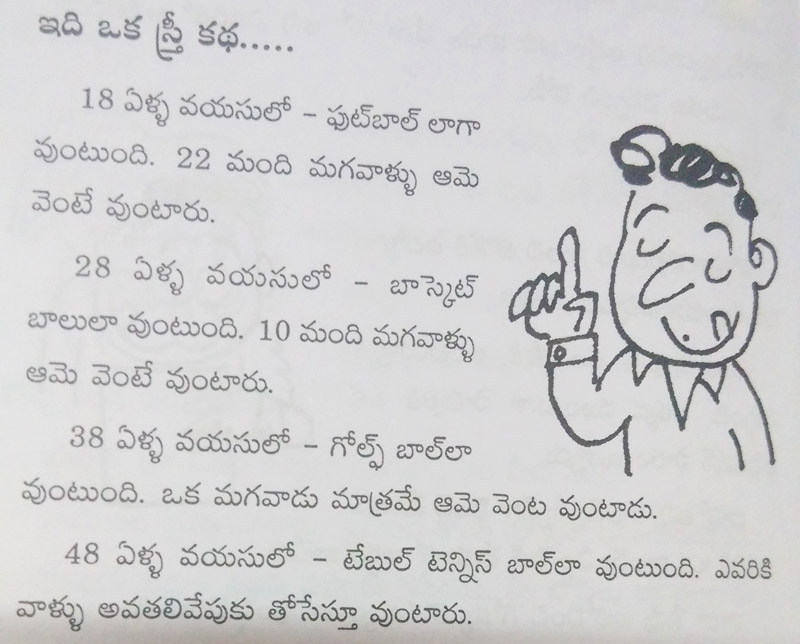 ఇది ఒక స్త్రీ కథ.....
18 ఏళ్ళ వయసులో - ఫుట్‌బాల్ లాగా
వుంటుంది. 22 మంది మగవాళ్ళు ఆమె
వెంటే వుంటారు.
28 ఏళ్ళ వయసులో - బాస్కెట్
బాలులా వుంటుంది. 10 మంది మగవాళ్ళు
ఆమె వెంటే వుంటారు.
38 ఏళ్ళ వయసులో - గోల్ఫ్ బాల్‌లా
వుంటుంది. ఒక మగవాడు మాత్రమే ఆమె వెంట వుంటాడు.
48 ఏళ్ళ వయసులో - టేబుల్ టెన్నిస్ బాల్‌లా వుంటుంది. ఎవరికి
వాళ్ళు అవతలివేపుకు తోసేస్తూ వుంటారు.